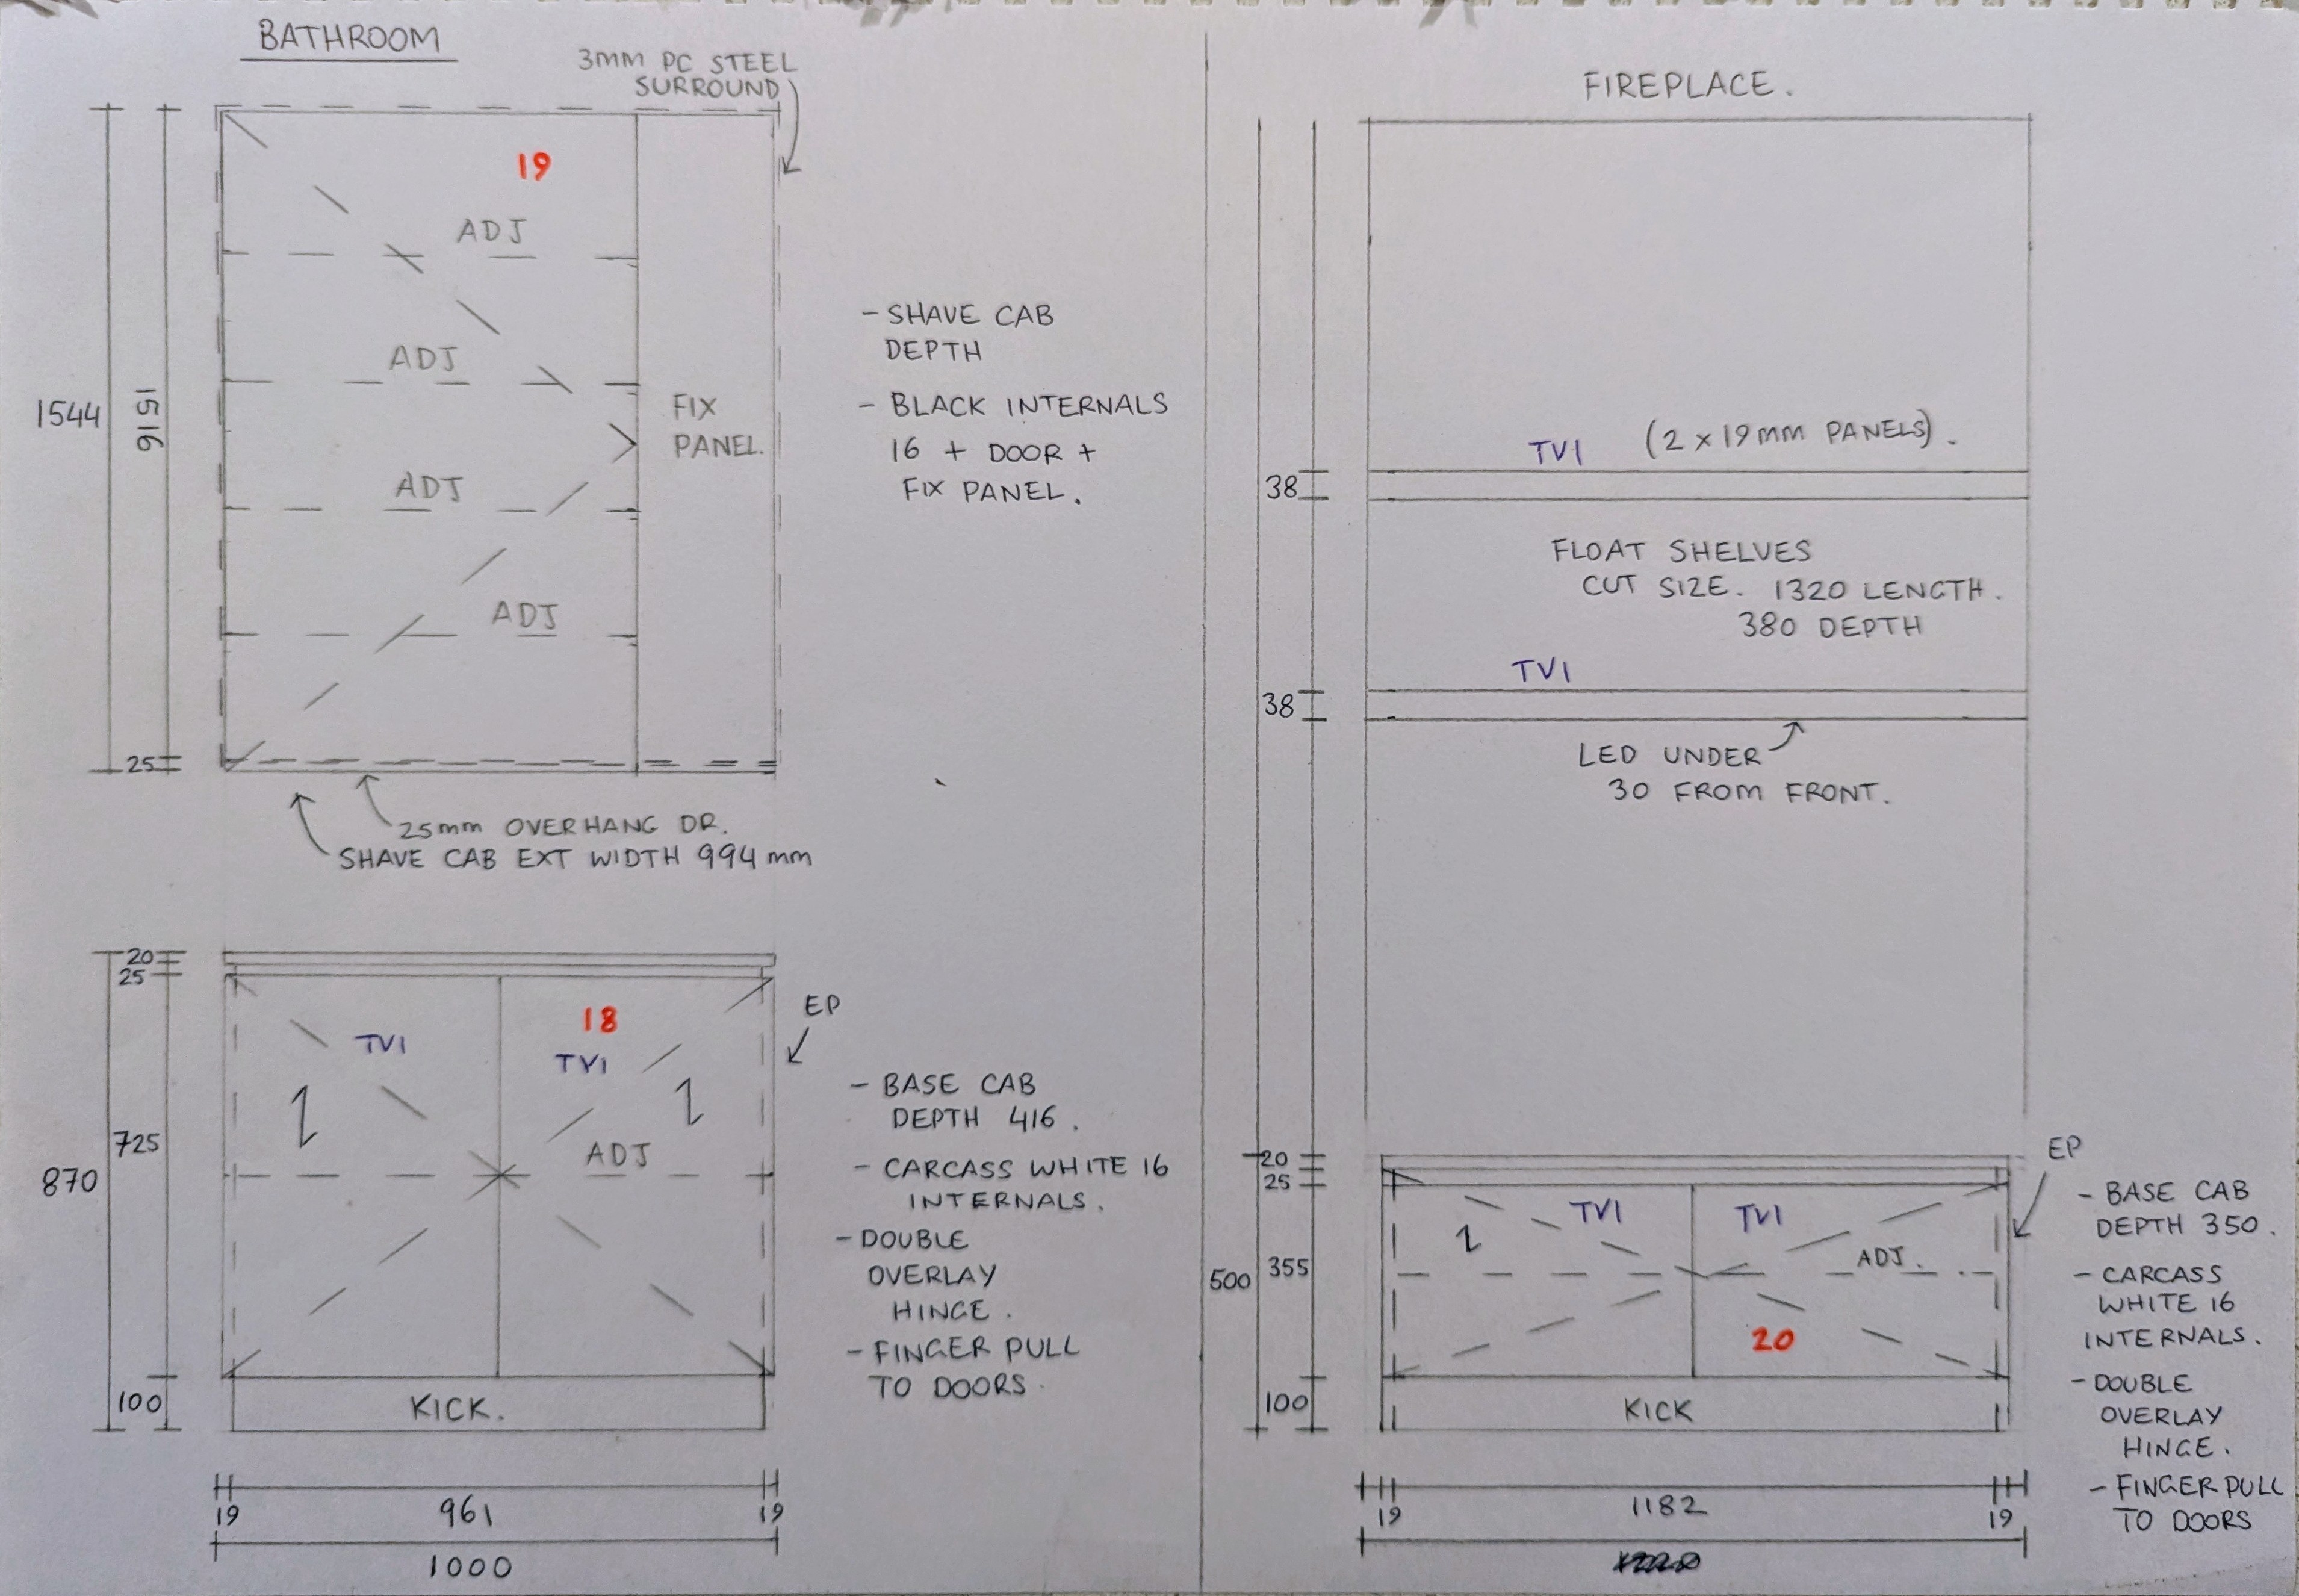 BATHROOM
3MM PC STEEL
SURROUND
19
ADJ
ADJ
ADJ
ADJ
FIX
PANEL.
1544
1516
25
25mm OVERHANG DR.
SHAVE CAB EXT WIDTH 994mm
- SHAVE CAB
DEPTH
- BLACK INTERNALS
16 + DOOR +
FIX PANEL.
20
25
725
870
100
18
TVI
TVI
ADJ
EP
KICK.
19
961
19
1000
- BASE CAB
DEPTH 416.
- CARCASS WHITE 16
INTERNALS.
- DOUBLE
OVERLAY
HINGE.
- FINGER PULL
TO DOORS.
FIREPLACE.
TVI (2 x 19mm PANELS).
38
FLOAT SHELVES
CUT SIZE. 1320 LENGTH.
380 DEPTH
TVI
38
LED UNDER
30 FROM FRONT.
20
25
355
500
100
TVI
TVI
ADJ.
20
EP
KICK
19
1182
19
- BASE CAB
DEPTH 350.
- CARCASS
WHITE 16
INTERNALS.
- DOUBLE
OVERLAY
HINGE.
- FINGER PULL
TO DOORS